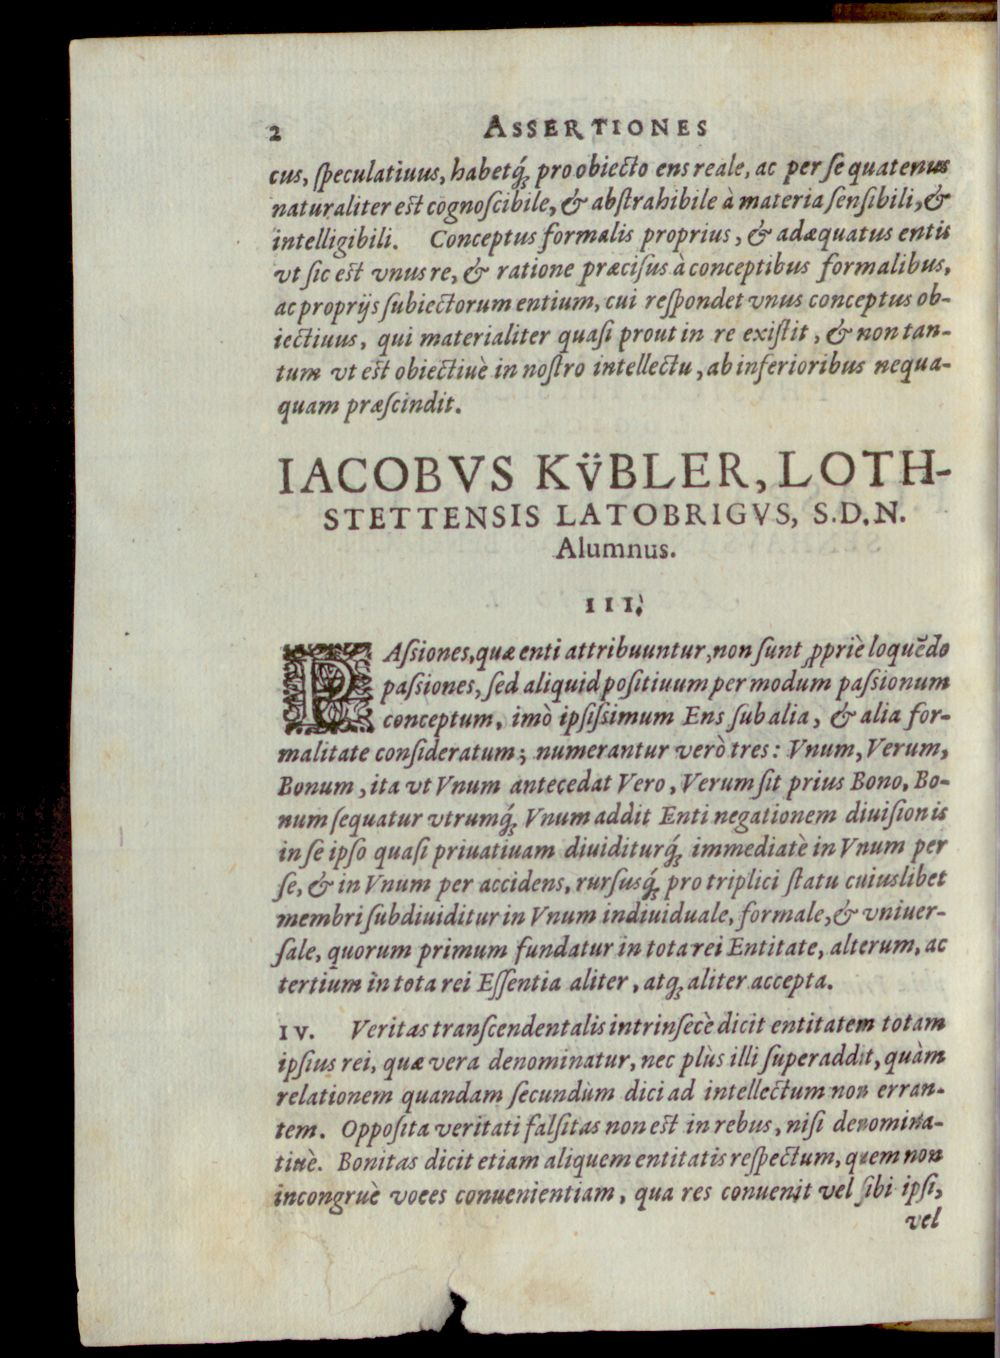 2 ASSERTIONES
cus, ſpeculatiuus, habetq́ꝫ pro obiecto ens reale, ac per ſe quatenus
naturaliter est cognoſcibile, & abſtrahibile à materia ſenſibili, &
intelligibili. Conceptus formalis proprius, & adæquatus entis
vt ſic est vnus re, & ratione præciſus à conceptibus formalibus,
ac proprijs ſubiectorum entium, cui reſpondet vnus conceptus ob-
iectiuus, qui materialiter quaſi prout in re exiſtit, & non tan-
tum vt est obiectiuè in noſtro intellectu, ab inferioribus nequa-
quam præſcindit.
IACOBVS KV̈BLER, LOTH-
STETTENSIS LATOBRIGVS, S.D.N.
Alumnus.
III.
PAſsiones, quæ enti attribuuntur, non ſunt ꝓpriè loquẽdo
paſsiones, ſed aliquid poſitiuum per modum paſsionum
conceptum, imò ipſiſsimum Ens ſub alia, & alia for-
malitate conſideratum; numerantur verò tres: Vnum, Verum,
Bonum, ita vt Vnum antecedat Vero, Verum ſit prius Bono, Bo-
num ſequatur vtrumq́ꝫ Vnum addit Enti negationem diuiſionis
in ſe ipſo quaſi priuatiuam diuiditurq́ꝫ immediatè in Vnum per
ſe, & in Vnum per accidens, rurſusq́ꝫ pro triplici ſtatu cuiuslibet
membri ſubdiuiditur in Vnum indiuiduale, formale, & vniuer-
ſale, quorum primum fundatur in tota rei Entitate, alterum, ac
tertium in tota rei Eſſentia aliter, atqꝫ aliter accepta.
IV. Veritas tranſcendentalis intrinſecè dicit entitatem totam
ipſius rei, quæ vera denominatur, nec plùs illi ſuperaddit, quàm
relationem quandam ſecundùm dici ad intellectum non erran-
tem. Oppoſita veritati falſitas non est in rebus, niſi denomina-
tiuè. Bonitas dicit etiam aliquem entitatis reſpectum, quem non
incongruè voces conuenientiam, qua res conuenit vel ſibi ipſi,
vel